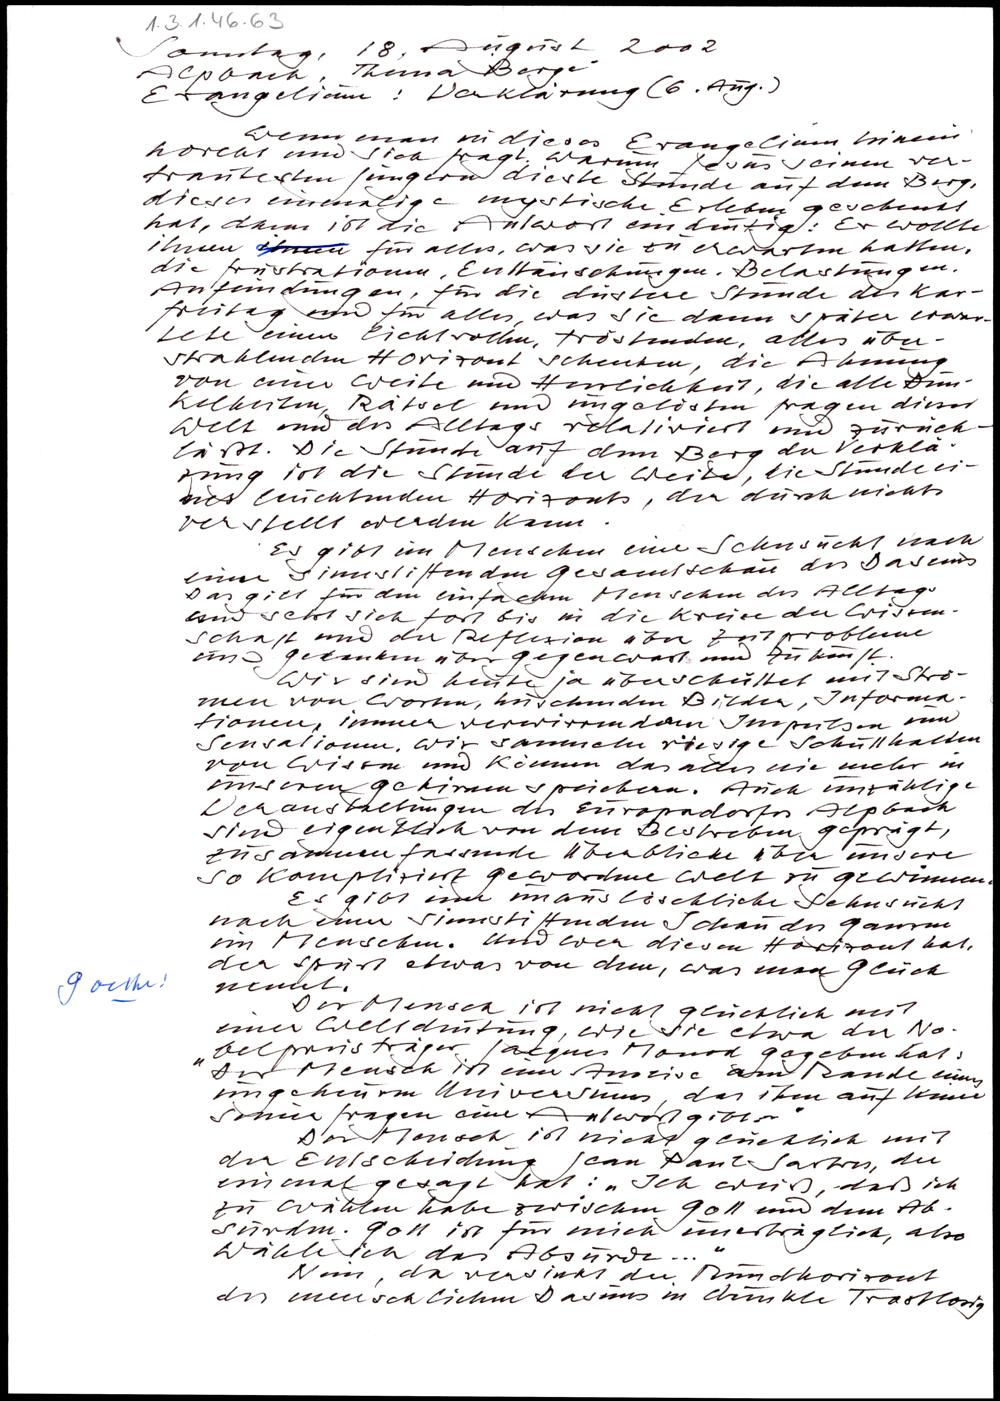 1.3.1.46.63
Sonntag, 18. August 2002
Alpbach, Thema Berge
Evangelium: Verklärung (6. Aug.)
Wenn man in dieses Evangelium hinein
horcht und sich fragt, warum Jesus seinen ver-
trautesten Jüngern dieste Stunde auf dem Berg,
dieses einmalige mystische Erleben geschenkt
hat, dann ist die Antwort eindeutig: Er wollte
ihnen ihnen für alles, was sie zu erwarten hatten,
die Frustrationen, Enttäuschungen, Belastungen,
Anfeindungen, für die düstere Stunde des Kar-
freitag und für alles, was sie dann später erwar-
tete einen lichtvollen, tröstenden, alles über-
strahlenden Horizont schenken, die Ahnung
von einer Weite und Herrlichkeit, die alle Dun-
kelheiten, Rätsel und ungelösten Fragen dieser
Welt und des Alltags relativiert und zurück-
läßt. Die Stunde auf dem Berg der Verklä-
rung ist die Stunde der Weite, die Stunde ei-
nes leuchtenden Horizonts, der durch nichts
verstellt werden kann.
Es gibt im Menschen eine Sehnsucht nach
einer sinnstiftenden Gesamtschau des Daseins
Das gilt für den einfachen Menschen des Alltags
und setzt sich fort bis in die Kreise der Wissen-
schaft und der Reflexion über Zeitprobleme
und Gedanken über Gegenwart und Zukunft.
Wir sind heute ja überschüttet mit Strö-
men von Worten, huschenden Bilder, Informa-
tionen, immer verwirrenderen Impulsen und
Sensationen. Wir sammeln riesige Schutthalden
von Wissen und können das alles nie mehr in
unseren Gehirnen speichern. Auch unzählige
Veranstaltungen des Europadorfes Alpbach
sind eigentlich von dem Bestreben geprägt,
zusammenfassende Überblicke über unsere
so kompliziert gewordne Welt zu gewinnen.
Es gibt eine unauslöschliche Sehnsucht
nach einer sinnstiftenden Schau des Ganzen
im Menschen. Und wer diesen Horizont hat,
der spürt etwas von dem, was man Glück
nennt.
Goethe!
Der Mensch ist nicht glücklich mit
einer Weltdeutung, wie sie etwa der No-
belpreisträger Jacques Monod gegeben hat:
"Der Mensch ist eine Ameise am Rande eines
ungeheuren Universums, das ihm auf keine
seiner Fragen eine Antwort gibt."
Der Mensch ist nicht glücklich mit
der Entscheidung Jean Paul Sartres, der
einmal gesagt hat: „Ich weiß, daß ich
zu wählen habe zwischen Gott und dem Ab-
surden. Gott ist für mich unerträglich, also
wähle ich das Absurde..."
Nein, da versinkt der Rundhorizont
des menschlichen Daseins in dunkle Trostlosig